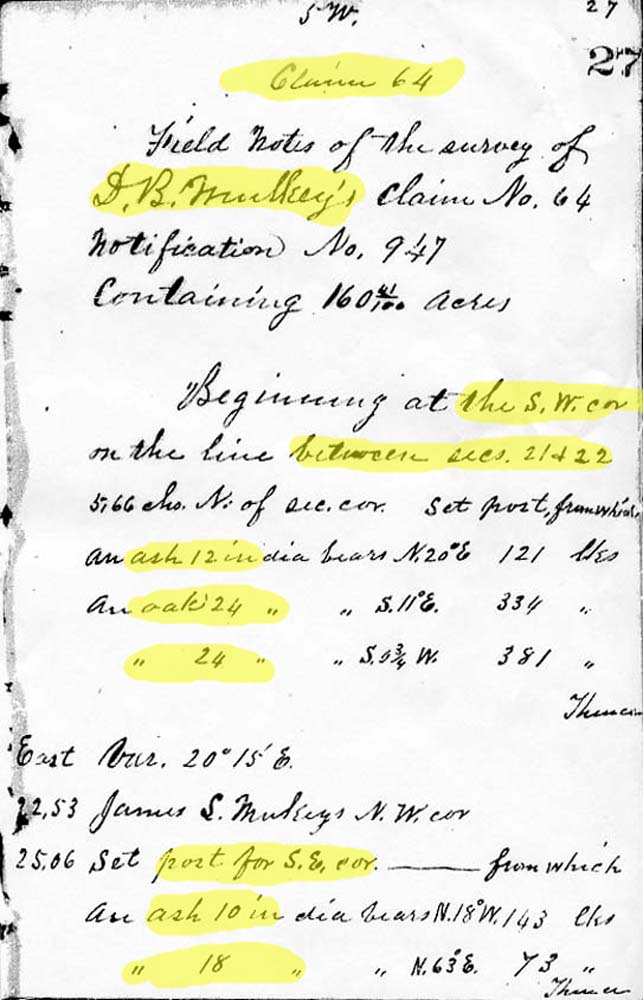 5 W.
27
27
Claim 64
Field Notes of the survey of
D. B. Mulkey's Claim No. 64
Notification No. 947
Containing 160 41/100 Acres
Beginning at the S. W. cor
on the line between secs. 21 & 22
5,66 chs. N. of sec. cor. Set post, from which
An ash 12 in dia bears N. 20° E 121 lks
An oak 24 " " S. 11° E. 334 "
" 24 " " S. 9¾ W. 381 "
Thence
East Var. 20° 15' E.
22,53 James L. Mulkeys N. W. cor
25,06 Set post for S. E. cor. —— from which
An ash 10 in dia bears N. 18° W. 143 lks
" 18 " " N. 63° E. 73 "
Thence